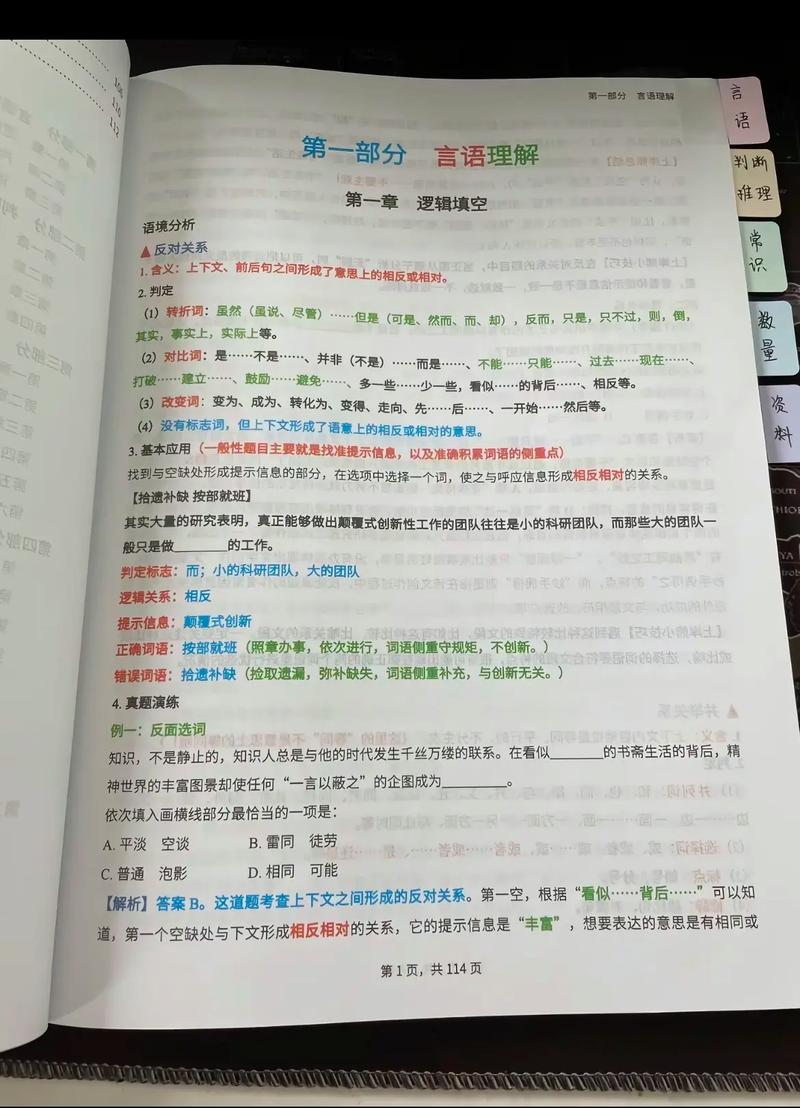 108
110
112
第一部分 言语理解
言语
判断推理
常识
数量
资料
第一部分 言语理解
第一章 逻辑填空
语境分析
▲反对关系
1.含义：上下文、前后句之间形成了意思上的相反或相对。
2. 判定
（1）转折词：虽然（虽说、尽管）……但是（可是、然而、而、却），反而，只是，只不过，则，倒，
其实，事实上，实际上等。
（2）对比词：是……不是……、并非（不是）……而是……、不能……只能……、过去……现在……、
打破……建立……、鼓励……避免……、多一些……少一些，看似……的背后……、相反等。
（3）改变词：变为、成为、转化为、变得、走向、先……后……、一开始……然后等。
（4）没有标志词，但上下文形成了语意上的相反或相对的意思。
3. 基本应用（一般性题目主要就是找准提示信息，以及准确积累词语的侧重点）
找到与空缺处形成提示信息的部分，在选项中选择一个词，使之与呼应信息形成相反相对的关系。
【拾遗补缺 按部就班】
其实大量的研究表明，真正能够做出颠覆式创新性工作的团队往往是小的科研团队，而那些大的团队一
般只是做______的工作。
判定标志：而；小的科研团队，大的团队
逻辑关系：相反
提示信息：颠覆式创新
正确词语：按部就班（照章办事，依次进行，词语侧重守规矩，不创新。）
错误词语：拾遗补缺（捡取遗漏，弥补缺失，词语侧重补充，与创新无关。）
4. 真题演练
例一：反面选词
知识，不是静止的，知识人总是与他的时代发生千丝万缕的联系。在看似______的书斋生活的背后，精
神世界的丰富图景却使任何“一言以蔽之”的企图成为________。
依次填入画横线部分最恰当的一项是：
A. 平淡 空谈 B. 雷同 徒劳
C. 普通 泡影 D. 相同 可能
【解析】答案 B。这道题考查上下文之间形成的反对关系。第一空，根据“看似……背后……”可以知
道，第一个空缺处与下文形成相反相对的关系，它的提示信息是“丰富”，想要表达的意思是有相同或
第 1 页，共 114 页